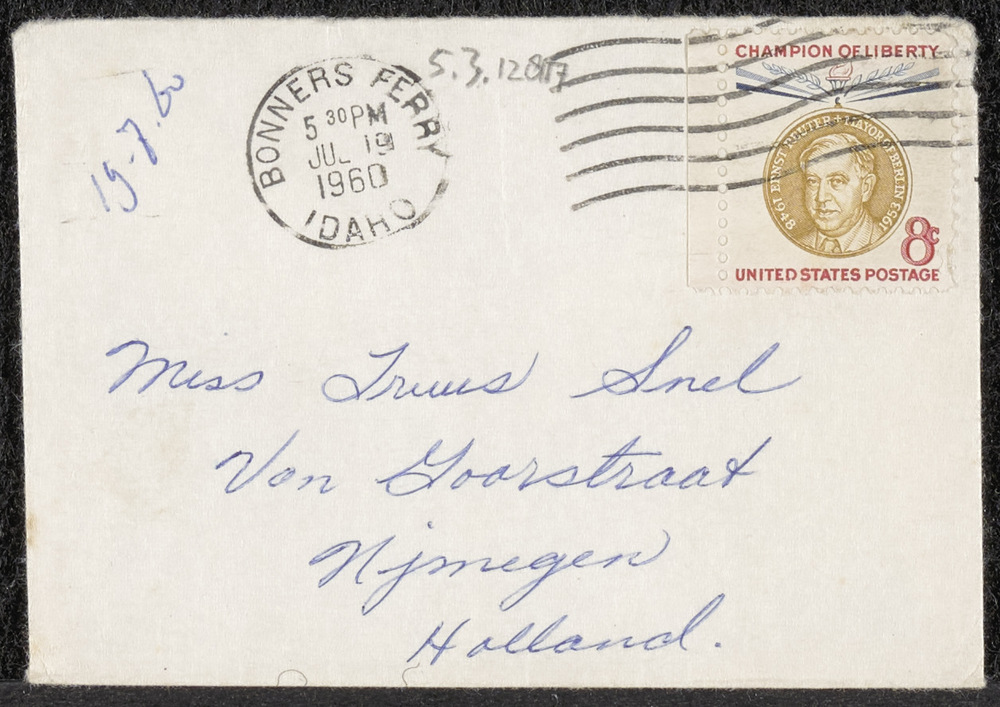 19-7.60
BONNERS FERRY
5 30 PM
JUL 19
1960
IDAHO
CHAMPION OF LIBERTY
1948 ERNST REUTER + MAYOR OF BERLIN 1953
8c
UNITED STATES POSTAGE
Miss Truus Snel
Van Goorstraat
Nijmegen
Holland.